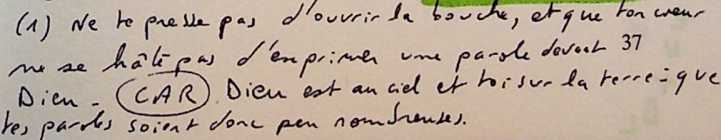 (1) Ne te presse pas d'ouvrir la bouche, et que ton cœur
ne se hâte pas d'exprimer une parole devant 37
Dieu - CAR Dieu est au ciel et toi sur la terre : que
tes paroles soient donc peu nombreuses.